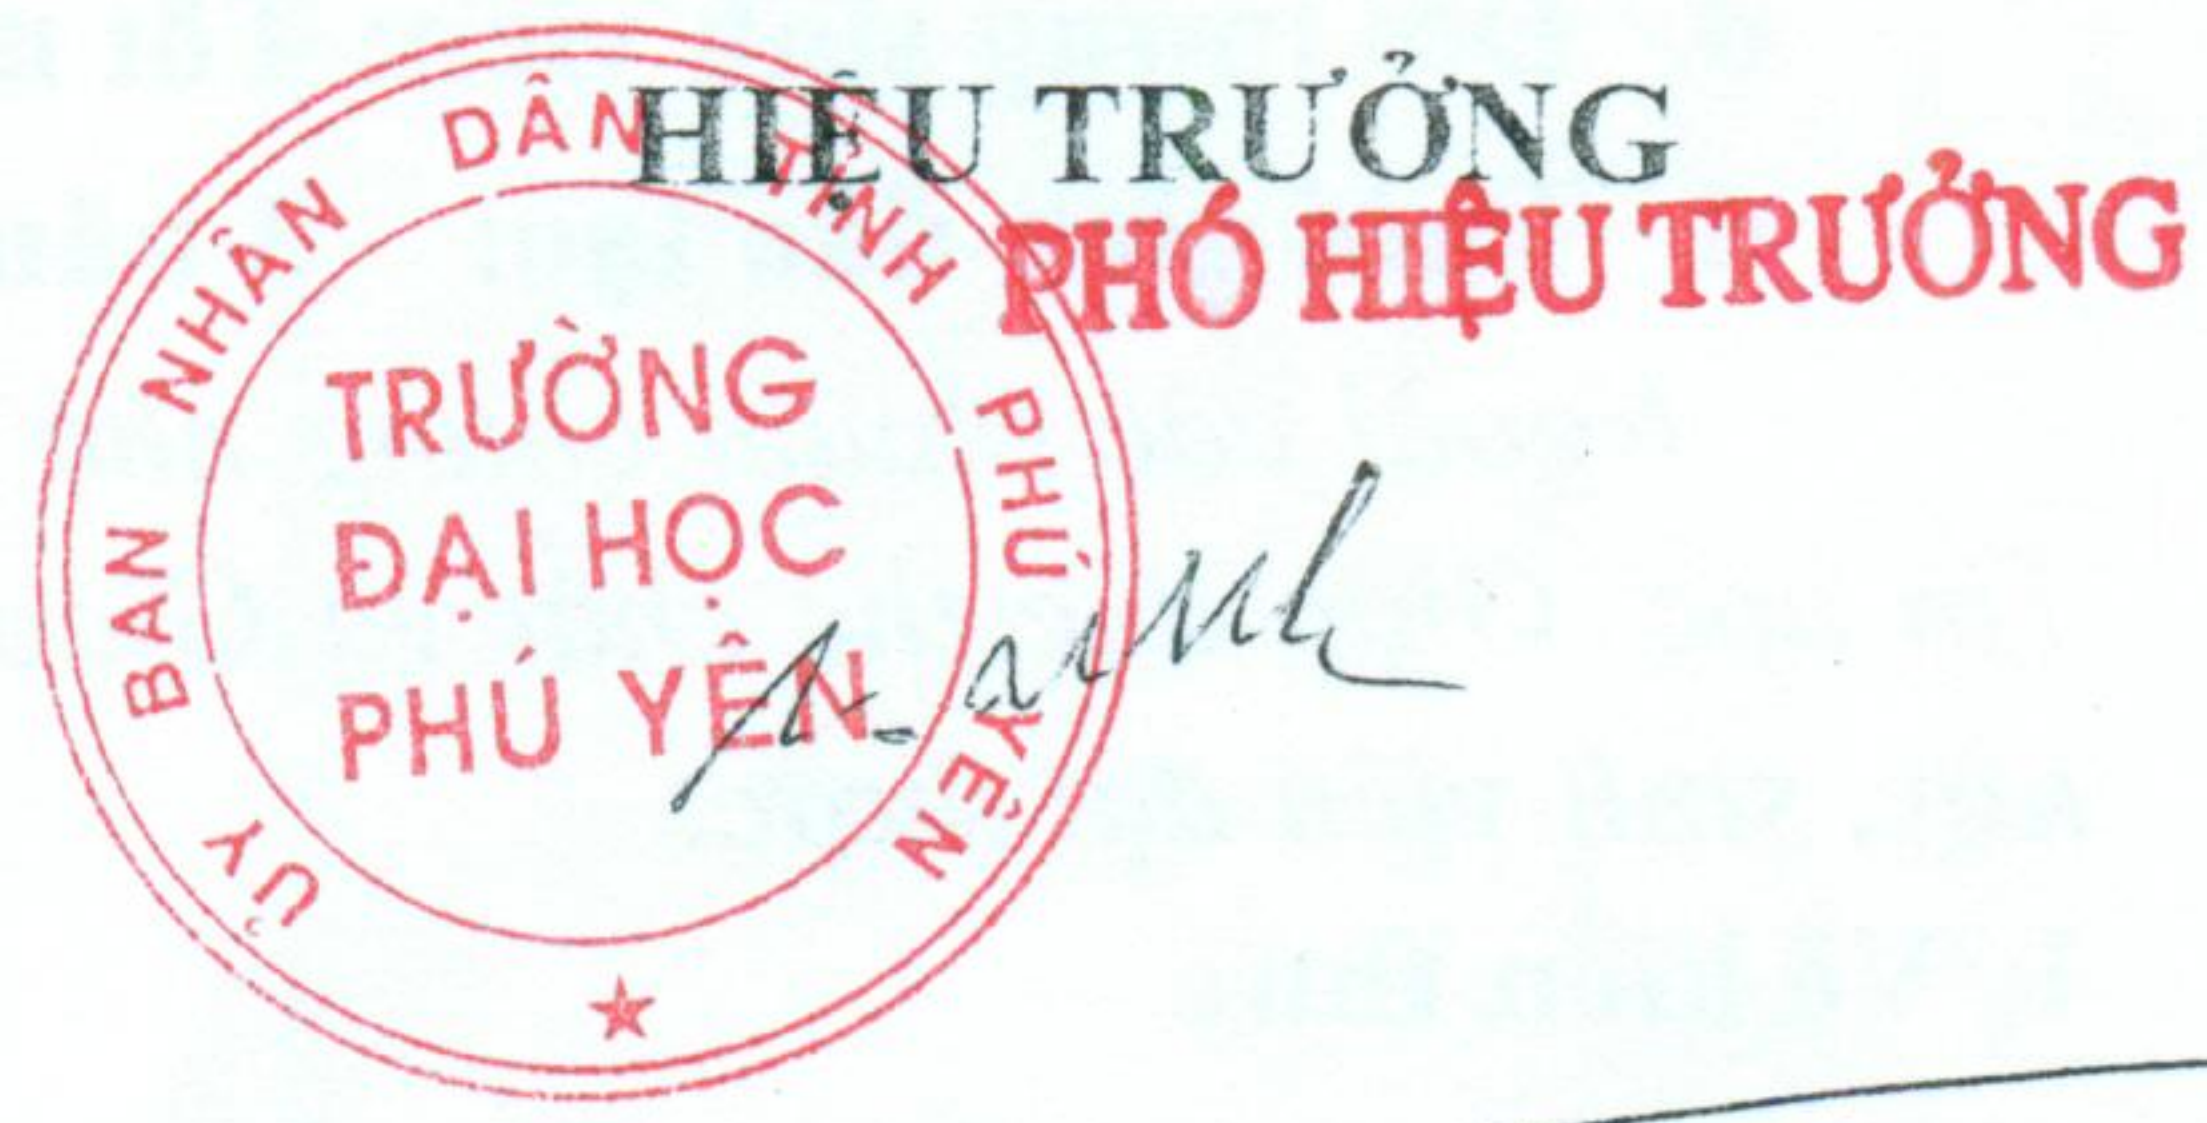 HIỆU TRƯỞNG
PHÓ HIỆU TRƯỞNG
ỦY BAN NHÂN DÂN TỈNH PHÚ YÊN
TRƯỜNG
ĐẠI HỌC
PHÚ YÊN